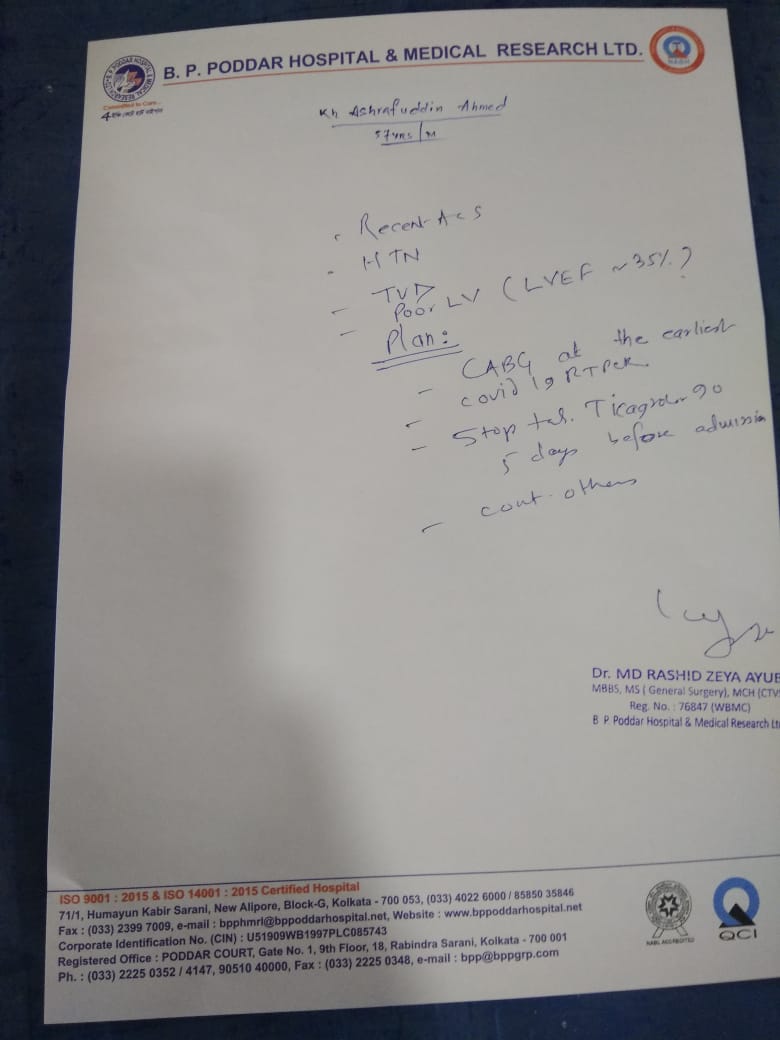 B. P. PODDAR HOSPITAL & MEDICAL RESEARCH LTD.
Committed to Care...
NABH
Kh Ashrafuddin Ahmed
57yrs/M
- Recent ACS
- HTN
- TVD
- Poor LV (LVEF ~35%)
Plan:
- CABG at the earliest
- covid 19 RTPCR
- Stop tab. Ticagrelor 90
5 days before admission
- cont. others
Dr. MD RASHID ZEYA AYUB
MBBS, MS ( General Surgery), MCH (CTVS
Reg. No. : 76847 (WBMC)
B P Poddar Hospital & Medical Research Lt
ISO 9001 : 2015 & ISO 14001 : 2015 Certified Hospital
71/1, Humayun Kabir Sarani, New Alipore, Block-G, Kolkata - 700 053, (033) 4022 6000 / 85850 35846
Fax : (033) 2399 7009, e-mail : bpphmrl@bppoddarhospital.net, Website : www.bppoddarhospital.net
Corporate Identification No. (CIN) : U51909WB1997PLC085743
Registered Office : PODDAR COURT, Gate No. 1, 9th Floor, 18, Rabindra Sarani, Kolkata - 700 001
Ph. : (033) 2225 0352 / 4147, 90510 40000, Fax : (033) 2225 0348, e-mail : bpp@bppgrp.com
NABL ACCREDITED
QCI